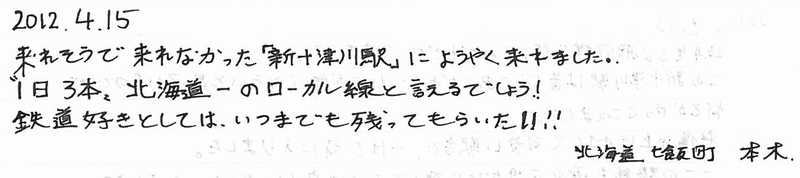 2012.4.15
来れそうで来れなかった「新十津川駅」にようやく来れました。
"1日3本"、北海道一のローカル線と言えるでしょう!
鉄道好きとしては、いつまでも残ってもらいたい!!
北海道 七飯町 本木.